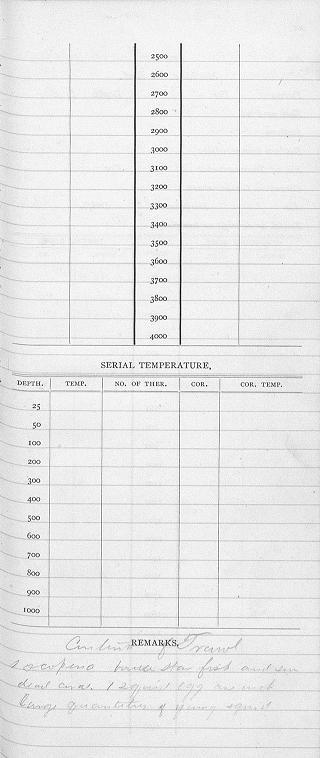 2500
2600
2700
2800
2900
3000
3100
3200
3300
3400
3500
3600
3700
3800
3900
4000
SERIAL TEMPERATURE.
DEPTH. TEMP. NO. OF THER. COR. COR. TEMP.
25
50
100
200
300
400
500
600
700
800
900
1000
REMARKS.
of Trawl
star fish and
dead 1 squid egg
Large quantities of young squid